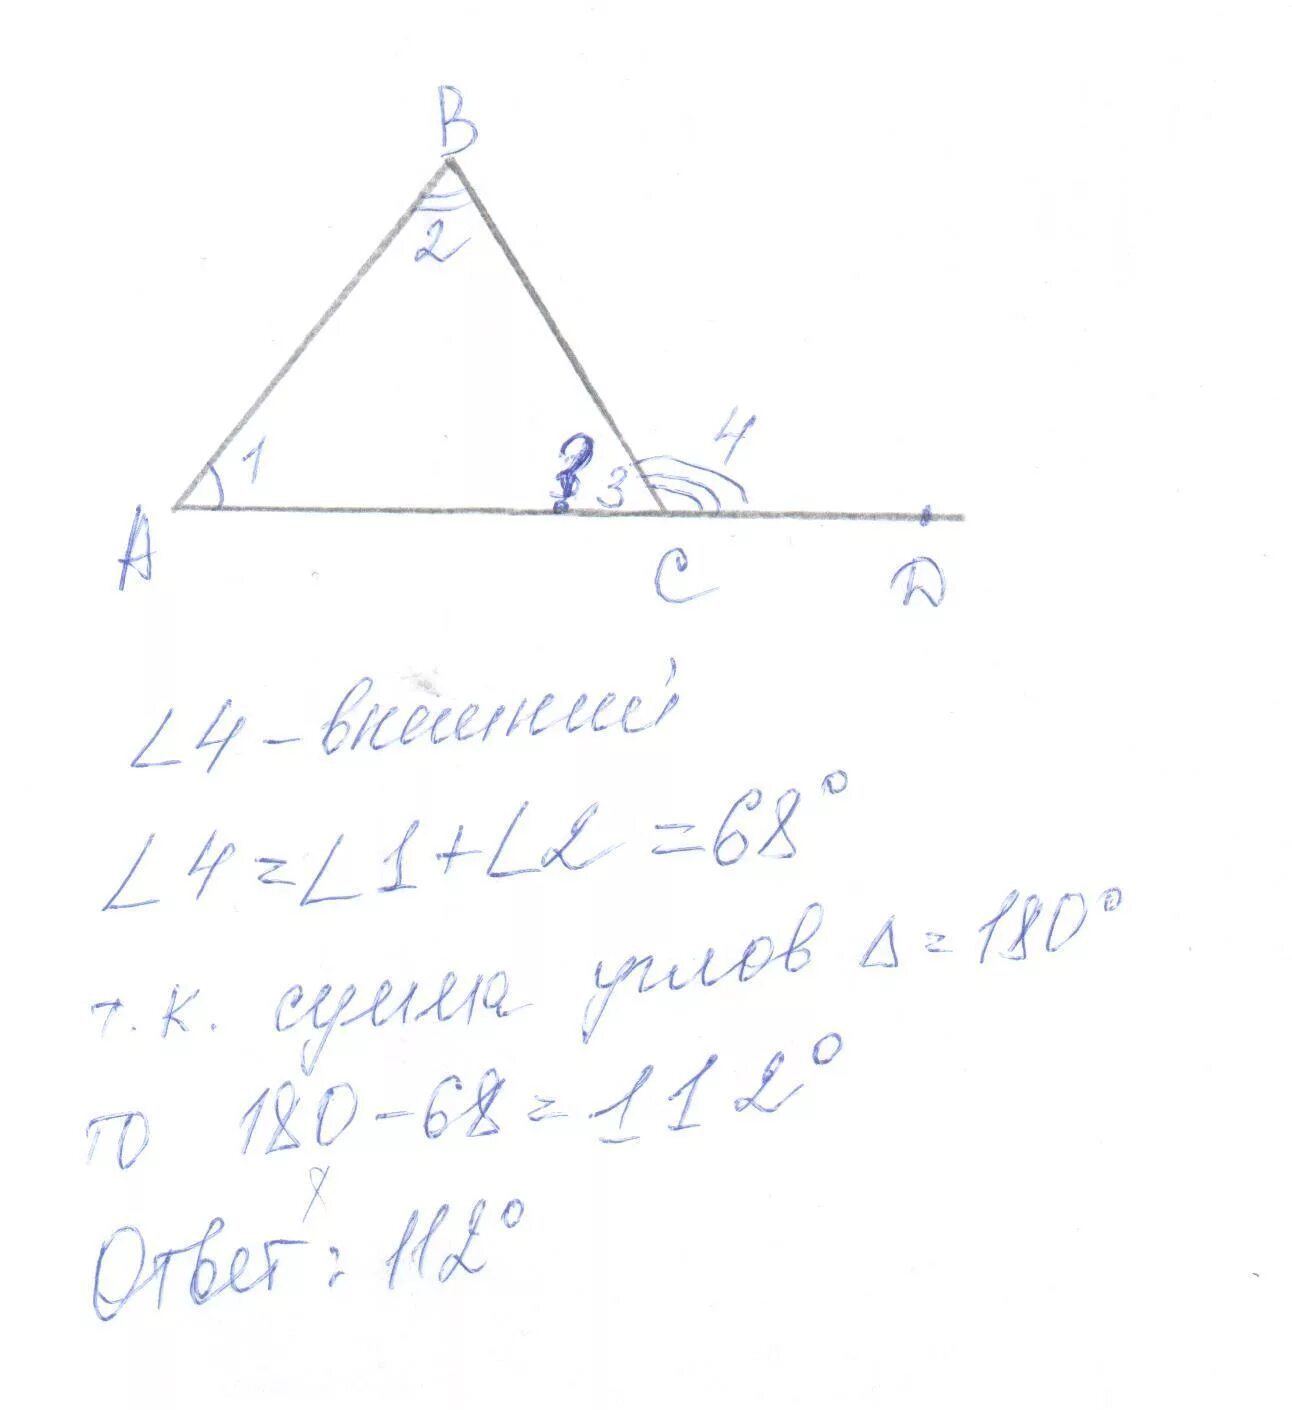 B
2
1
? 3 4
A C D
∠4 - внешний
∠4 = ∠1 + ∠2 = 68°
т.к. сумма углов Δ = 180°
то 180 - 68 = 112°
Ответ: 112°